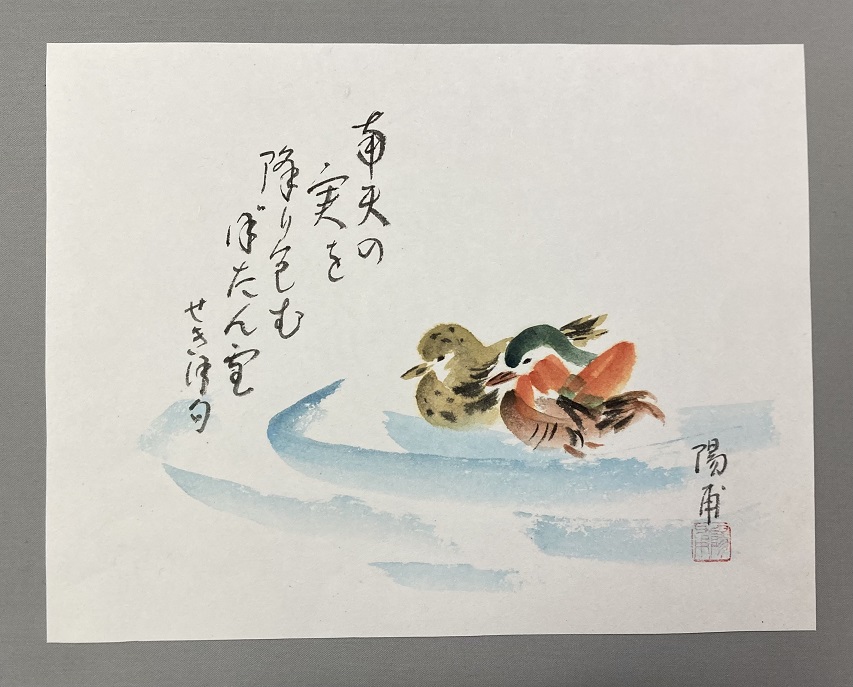 南天の
実を
降り包む
ぼたん雪
せき 句
陽甫